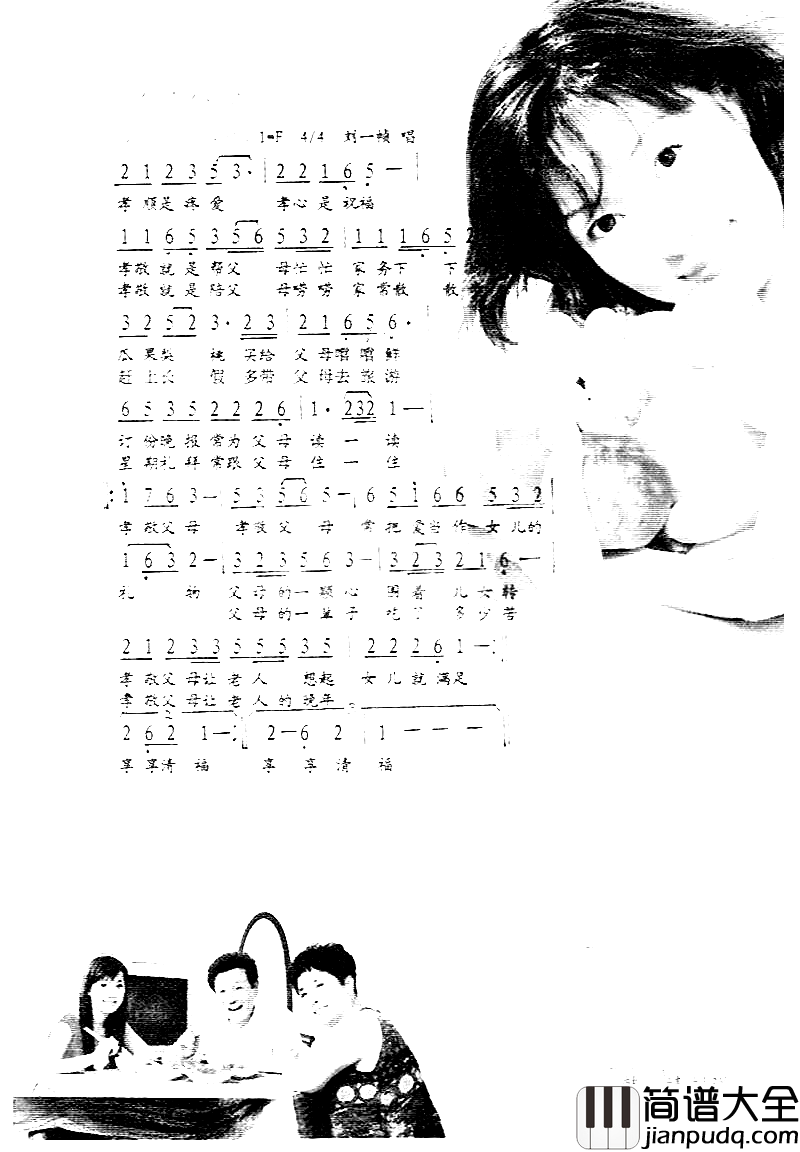 1=F 4/4 刘一祯 唱
2 1 2 3 5 3· | 2 2 1 6 5 —
孝顺是疼爱 孝心是祝福
1 1 6 5 3 5 6 5 3 2 | 1 1 1 6 5 2
孝敬就是帮父 母忙忙 家务下 下
孝敬就是陪父 母唠唠 家常散 散
3 2 5 2 3· 2 3 | 2 1 6 5 6·
瓜果 桃 买给 父母 鲜
赶上长 假 多带 父母去旅游
6 5 3 5 2 2 2 6 | 1· 2 3 2 1 — |
订份晚报常为父母 读一 读
星期礼拜常跟父母 住一 住
1 7 6 3 — | 5 3 5 6 5 — | 6 5 1 6 6 5 3 2
孝敬父母 孝敬父 母 常把爱当作女儿的
1 6 3 2 — | 3 2 3 5 6 3 — | 3 2 3 2 1 6 — —
礼 物 父母的一颗心 围着 儿女转
父母的一辈子 吃了 多少苦
2 1 2 3 3 5 5 5 3 5 | 2 2 2 6 1 — :
孝敬父母让老人 想起 女儿就满足
孝敬父母让老人的晚年
2 6 2 1 — : 2 — 6 2 | 1 — — — |
享享清 福 享 享清 福
简谱大全
jianpudq.com